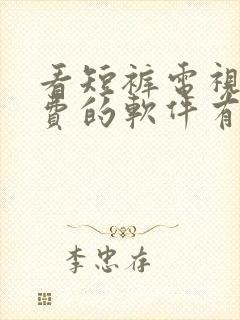 看短裤電視
費的軟件有
李忠存